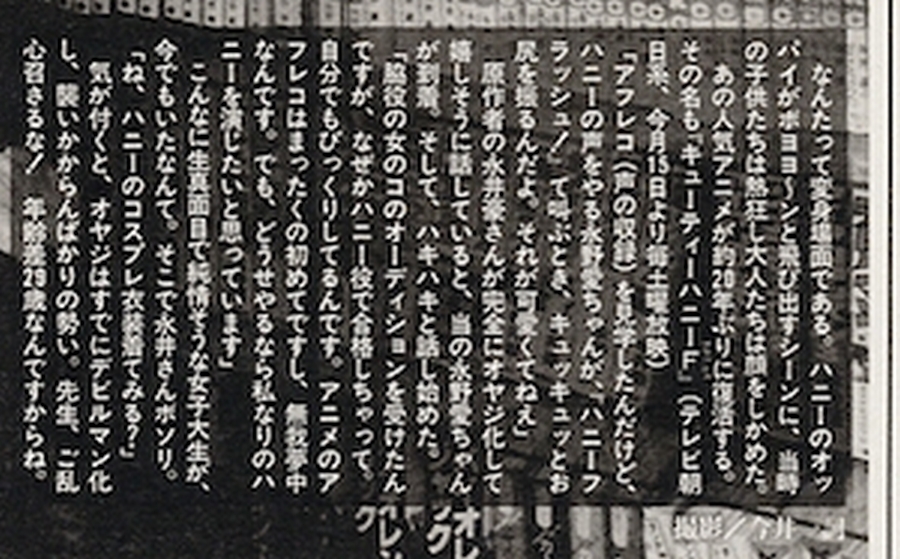 なんたって変身場面である。ハニーのオッ
パイがボヨヨ〜ンと飛び出すシーンに、当時
の子供たちは熱狂し大人たちは顔をしかめた。
あの人気アニメが約20年ぶりに復活する。
その名も『キューティーハニーF』(テレビ朝
日系、今月15日より毎土曜放映)
「アフレコ(声の収録)を見学したんだけど、
ハニーの声をやる永野愛ちゃんが、ハニーフ
ラッシュ!って叫ぶとき、キュッキュッとお
尻を振るんだよ。それが可愛くてねえ」
原作者の永井豪さんが完全にオヤジ化して
嬉しそうに話していると、当の永野愛ちゃん
が到着。そして、ハキハキと話し始めた。
「脇役の女のコのオーディションを受けたん
ですが、なぜかハニー役で合格しちゃって。
自分でもびっくりしてるんです。アニメのア
フレコはまったくの初めてですし、無我夢中
なんです。でも、どうせやるなら私なりのハ
ニーを演じたいと思っています」
こんなに生真面目で純情そうな女子大生が、
今でもいたなんて。そこで永井さんボソリ。
「ね、ハニーのコスプレ衣装着てみる?」
気が付くと、オヤジはすでにデビルマン化
し、襲いかからんばかりの勢い。先生、ご乱
心召さるな! 年齢差29歳なんですからね。
撮影/今井